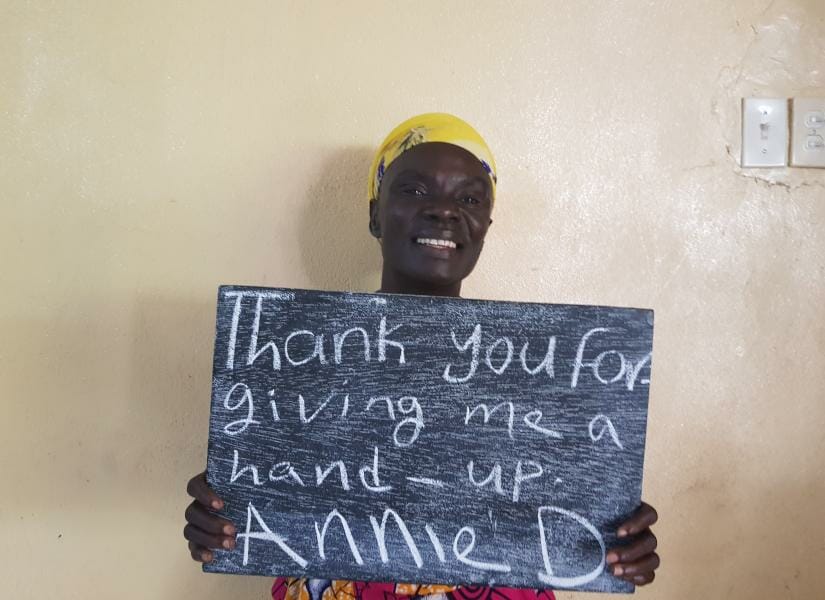 Thank you for
giving me a
hand - up.
Annie D